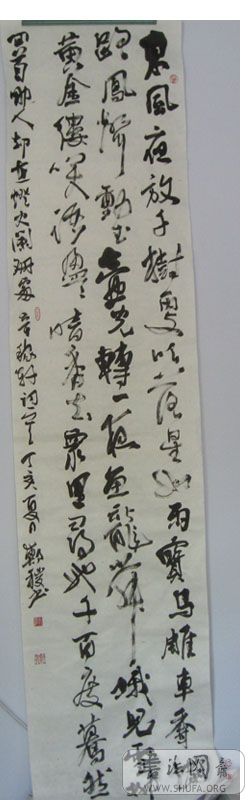 東風夜放千樹更吹落星如雨寶馬雕車香
路鳳簫動玉壺光轉一夜魚龍舞蛾兒雪
黃金縷笑語盈盈暗香去眾里尋他千百度驀然
回首那人却在燈火闌珊處 辛棄疾詞 丁亥夏月 書
WWW.SHUFA.ORG